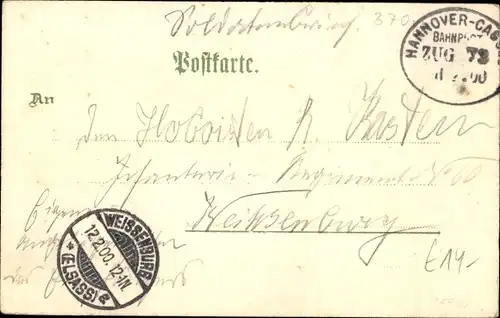 Soldatenbrief. 370
HANNOVER-CASS
BAHNPOST
ZUG 73
2.00
Postkarte.
An
den Hoboisten R. Kasten
Infanterie-Regiment No 60
Weißenburg
Eigene
WEISSENBURG
12.2.00. 12-1N.
* (ELSASS) a
£14-